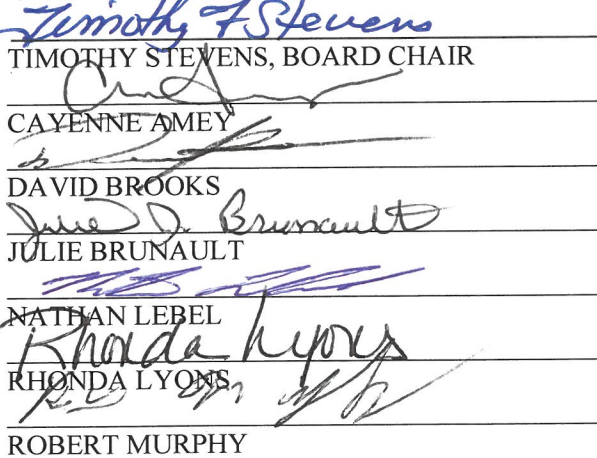 Timothy F Stevens
TIMOTHY STEVENS, BOARD CHAIR
CAYENNE AMEY
DAVID BROOKS
Julie D. Brunault
JULIE BRUNAULT
NATHAN LEBEL
Rhonda Lyons
RHONDA LYONS
ROBERT MURPHY